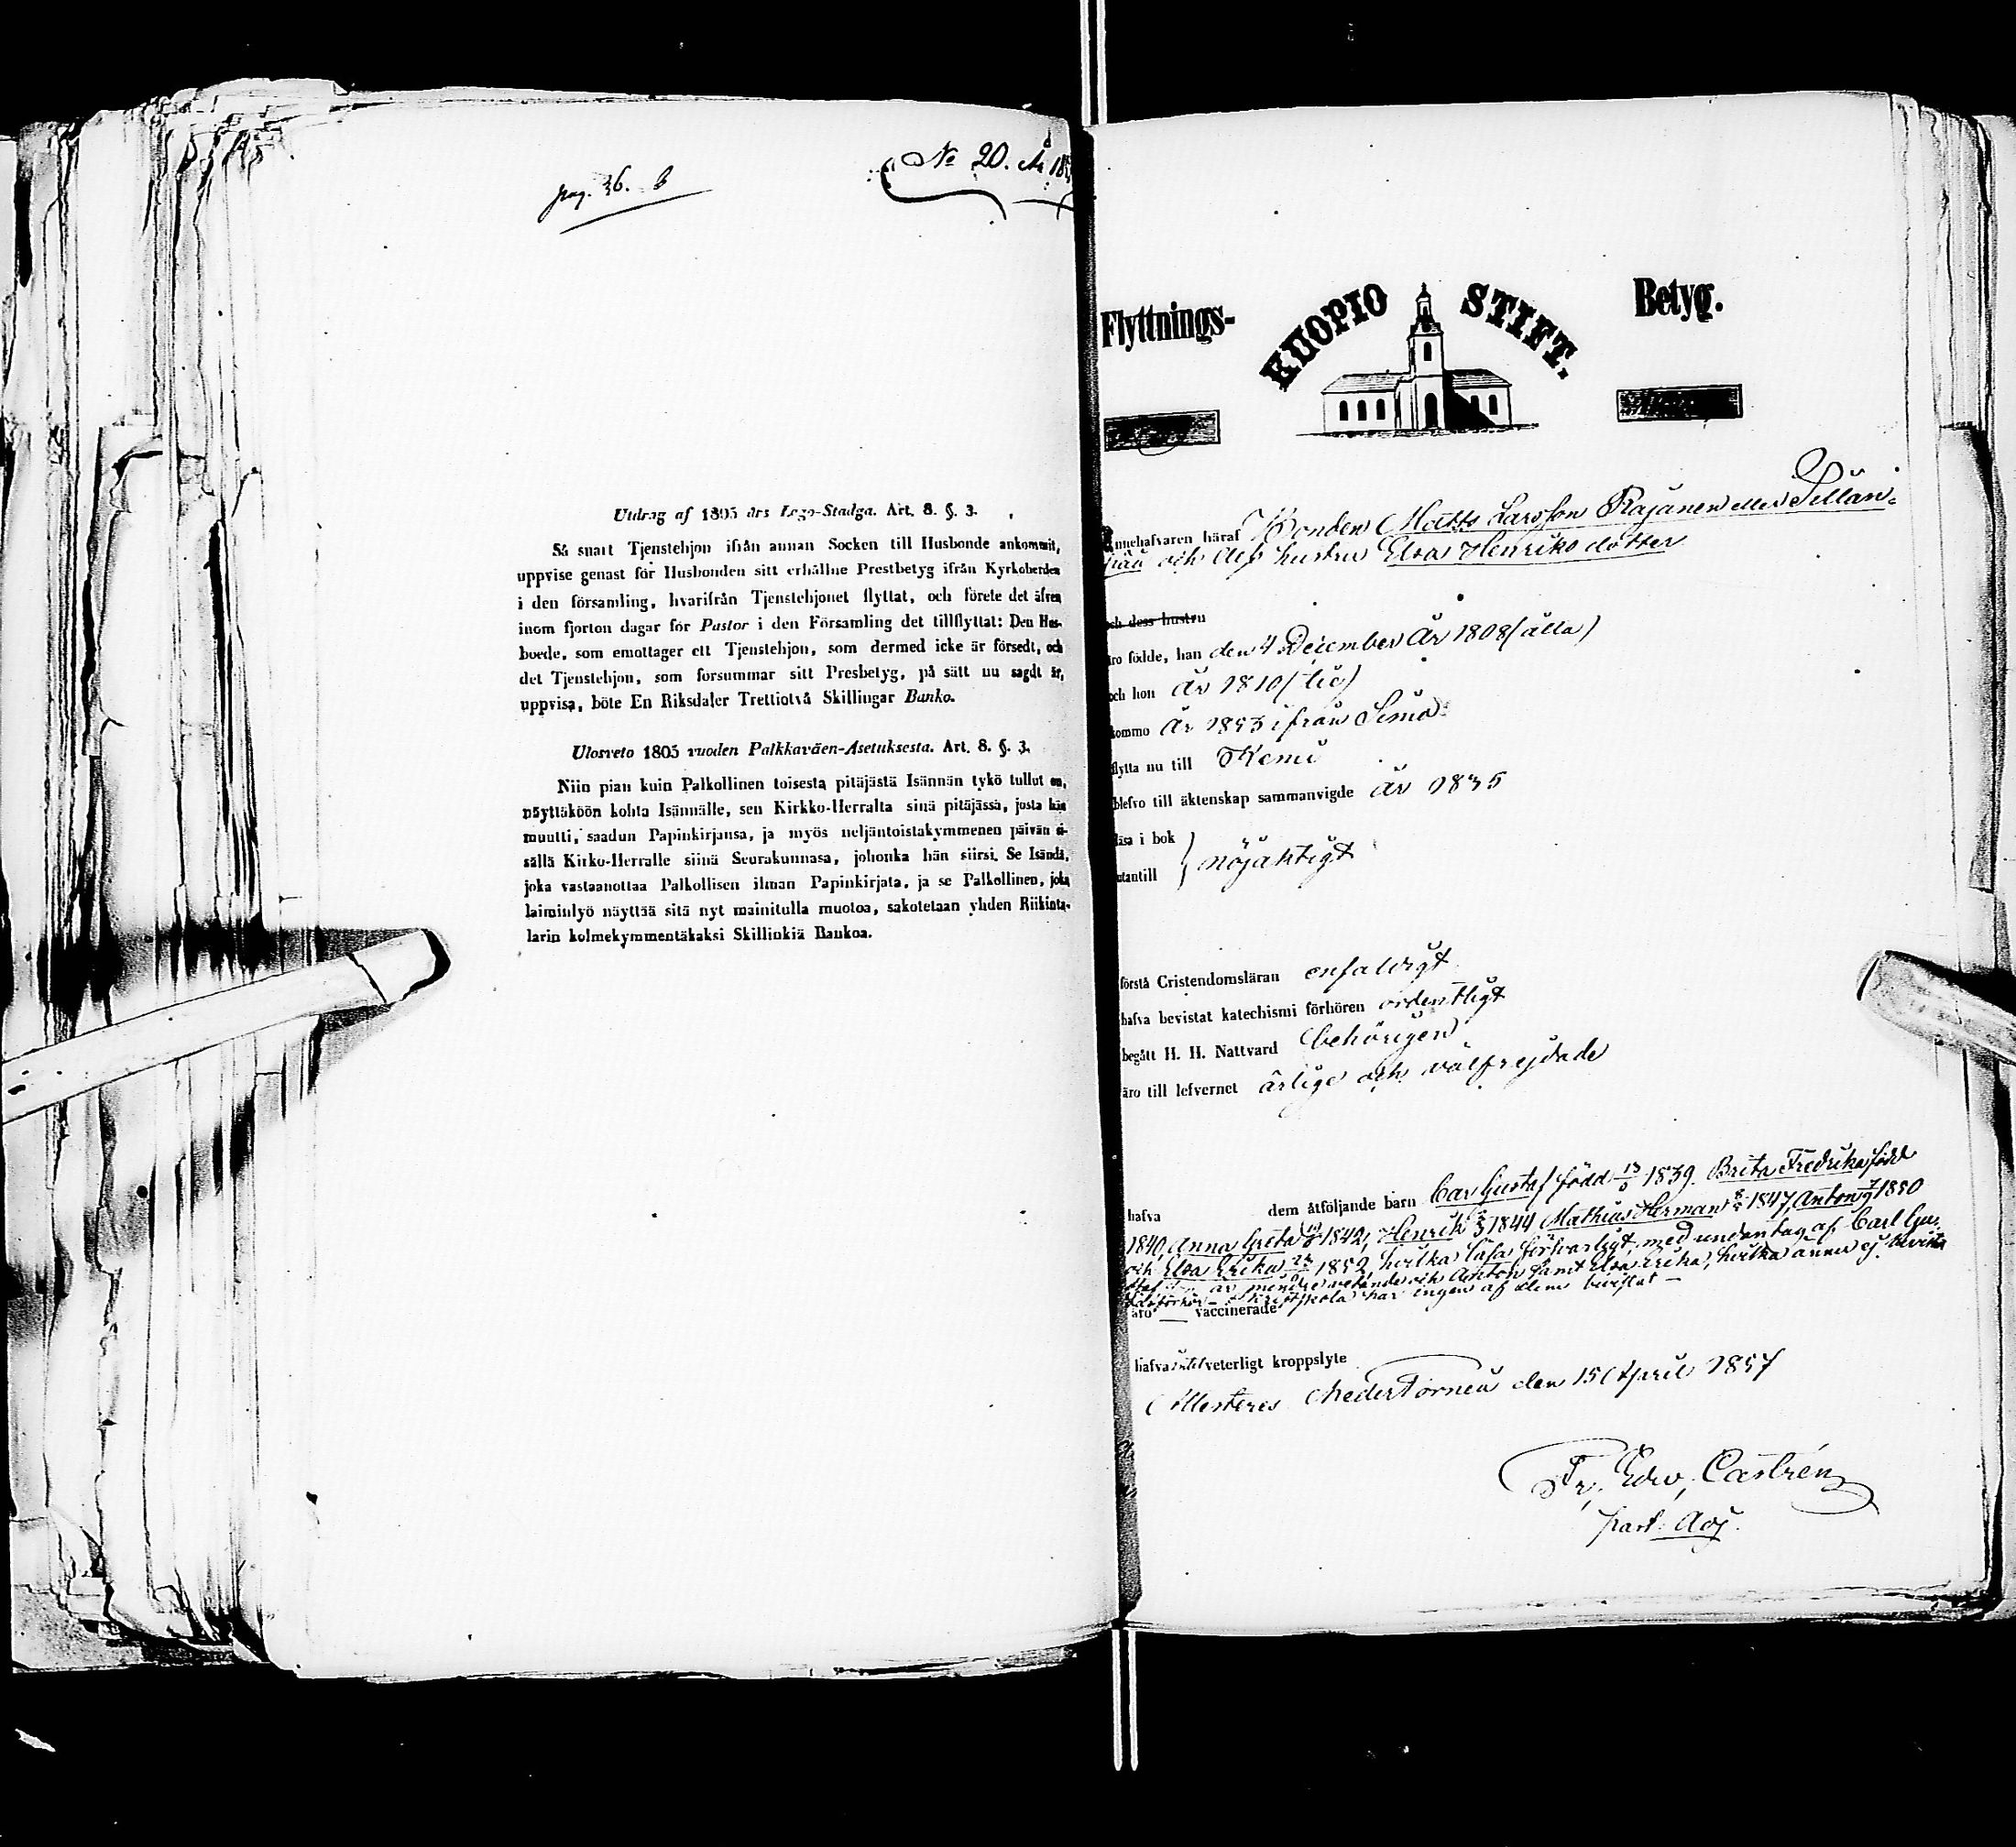 pag. 36. b
No 20. År 185
Utdrag af 1805 års Lego-Stadga. Art. 8. §. 3.
Så snart Tjenstehjon ifrån annan Socken till Husbonde ankommit,
uppvise genast för Husbonden sitt erhållne Prestbetyg ifrån Kyrkoherden
i den församling, hvarifrån Tjenstehjonet flyttat, och förete det äfven
inom fjorton dagar för Pastor i den Församling det tillflyttat: Den Hus-
bonde, som emottager ett Tjenstehjon, som dermed icke är försedt, och
det Tjenstehjon, som försummar sitt Presbetyg, på sätt nu sagdt är,
uppvisa, böte En Riksdaler Trettiotvå Skillingar Banko.
Ulosveto 1805 vuoden Palkkaväen-Asetuksesta. Art. 8. §. 3.
Niin pian kuin Palkollinen toisesta pitäjästä Isännän tykö tullut on,
näyttäköön kohta Isännälle, sen Kirkko-Herralta sinä pitäjässä, josta hän
muutti, saadun Papinkirjansa, ja myös neljäntoistakymmenen päivän si-
sällä Kirko-Herralle siinä Seurakunnasa, johonka hän siirsi. Se Isändä,
joka vastaanottaa Palkollisen ilman Papinkirjata, ja se Palkollinen, joka
laiminlyö näyttää sitä nyt mainitulla muotoa, sakotetaan yhden Riikinta-
larin kolmekymmentäkaksi Skillinkiä Bankoa.
Flyttnings- KUOPIO STIFT. Betyg.
Innehafvaren häraf Bonden Matts Larsson Rajanen eller
och dess hustru Elsa Henriksdotter
och dess hustru
äro födde, han den 4 December År 1808 (åtta)
och hon År 1810 (tio)
kommo År 1853 ifrån Simo
flytta nu till Kemi
blefvo till äktenskap sammanvigde År 1835
läsa i bok
utantill } nöjaktigt
förstå Cristendomsläran enfaldigt
hafva bevistat katechismi förhören ordentligt
begått H. H. Nattvard behörigen
äro till lefvernet ärlige och välfrejdade
hafva dem åtföljande barn Carl Gustaf född 1839. Brita Fredrika född
1840, Anna Greta 1842, Henrik 1844 Mathias Herman 1847, Anton 1850
och Elsa Erika 1852, hvilka läsa försvarligt, med undantag af Carl Gus-
taf som är mindre vetande och Anton samt Elsa Erika, hvilka ännu ej bevistat
läsförhör – Skriftskola har ingen af dem bevistat –
äro vaccinerade
hafva intet veterligt kroppslyte
Attesteras NederTorneå den 15 April 1857
Fr. Edv. Castrén
past. Adj.